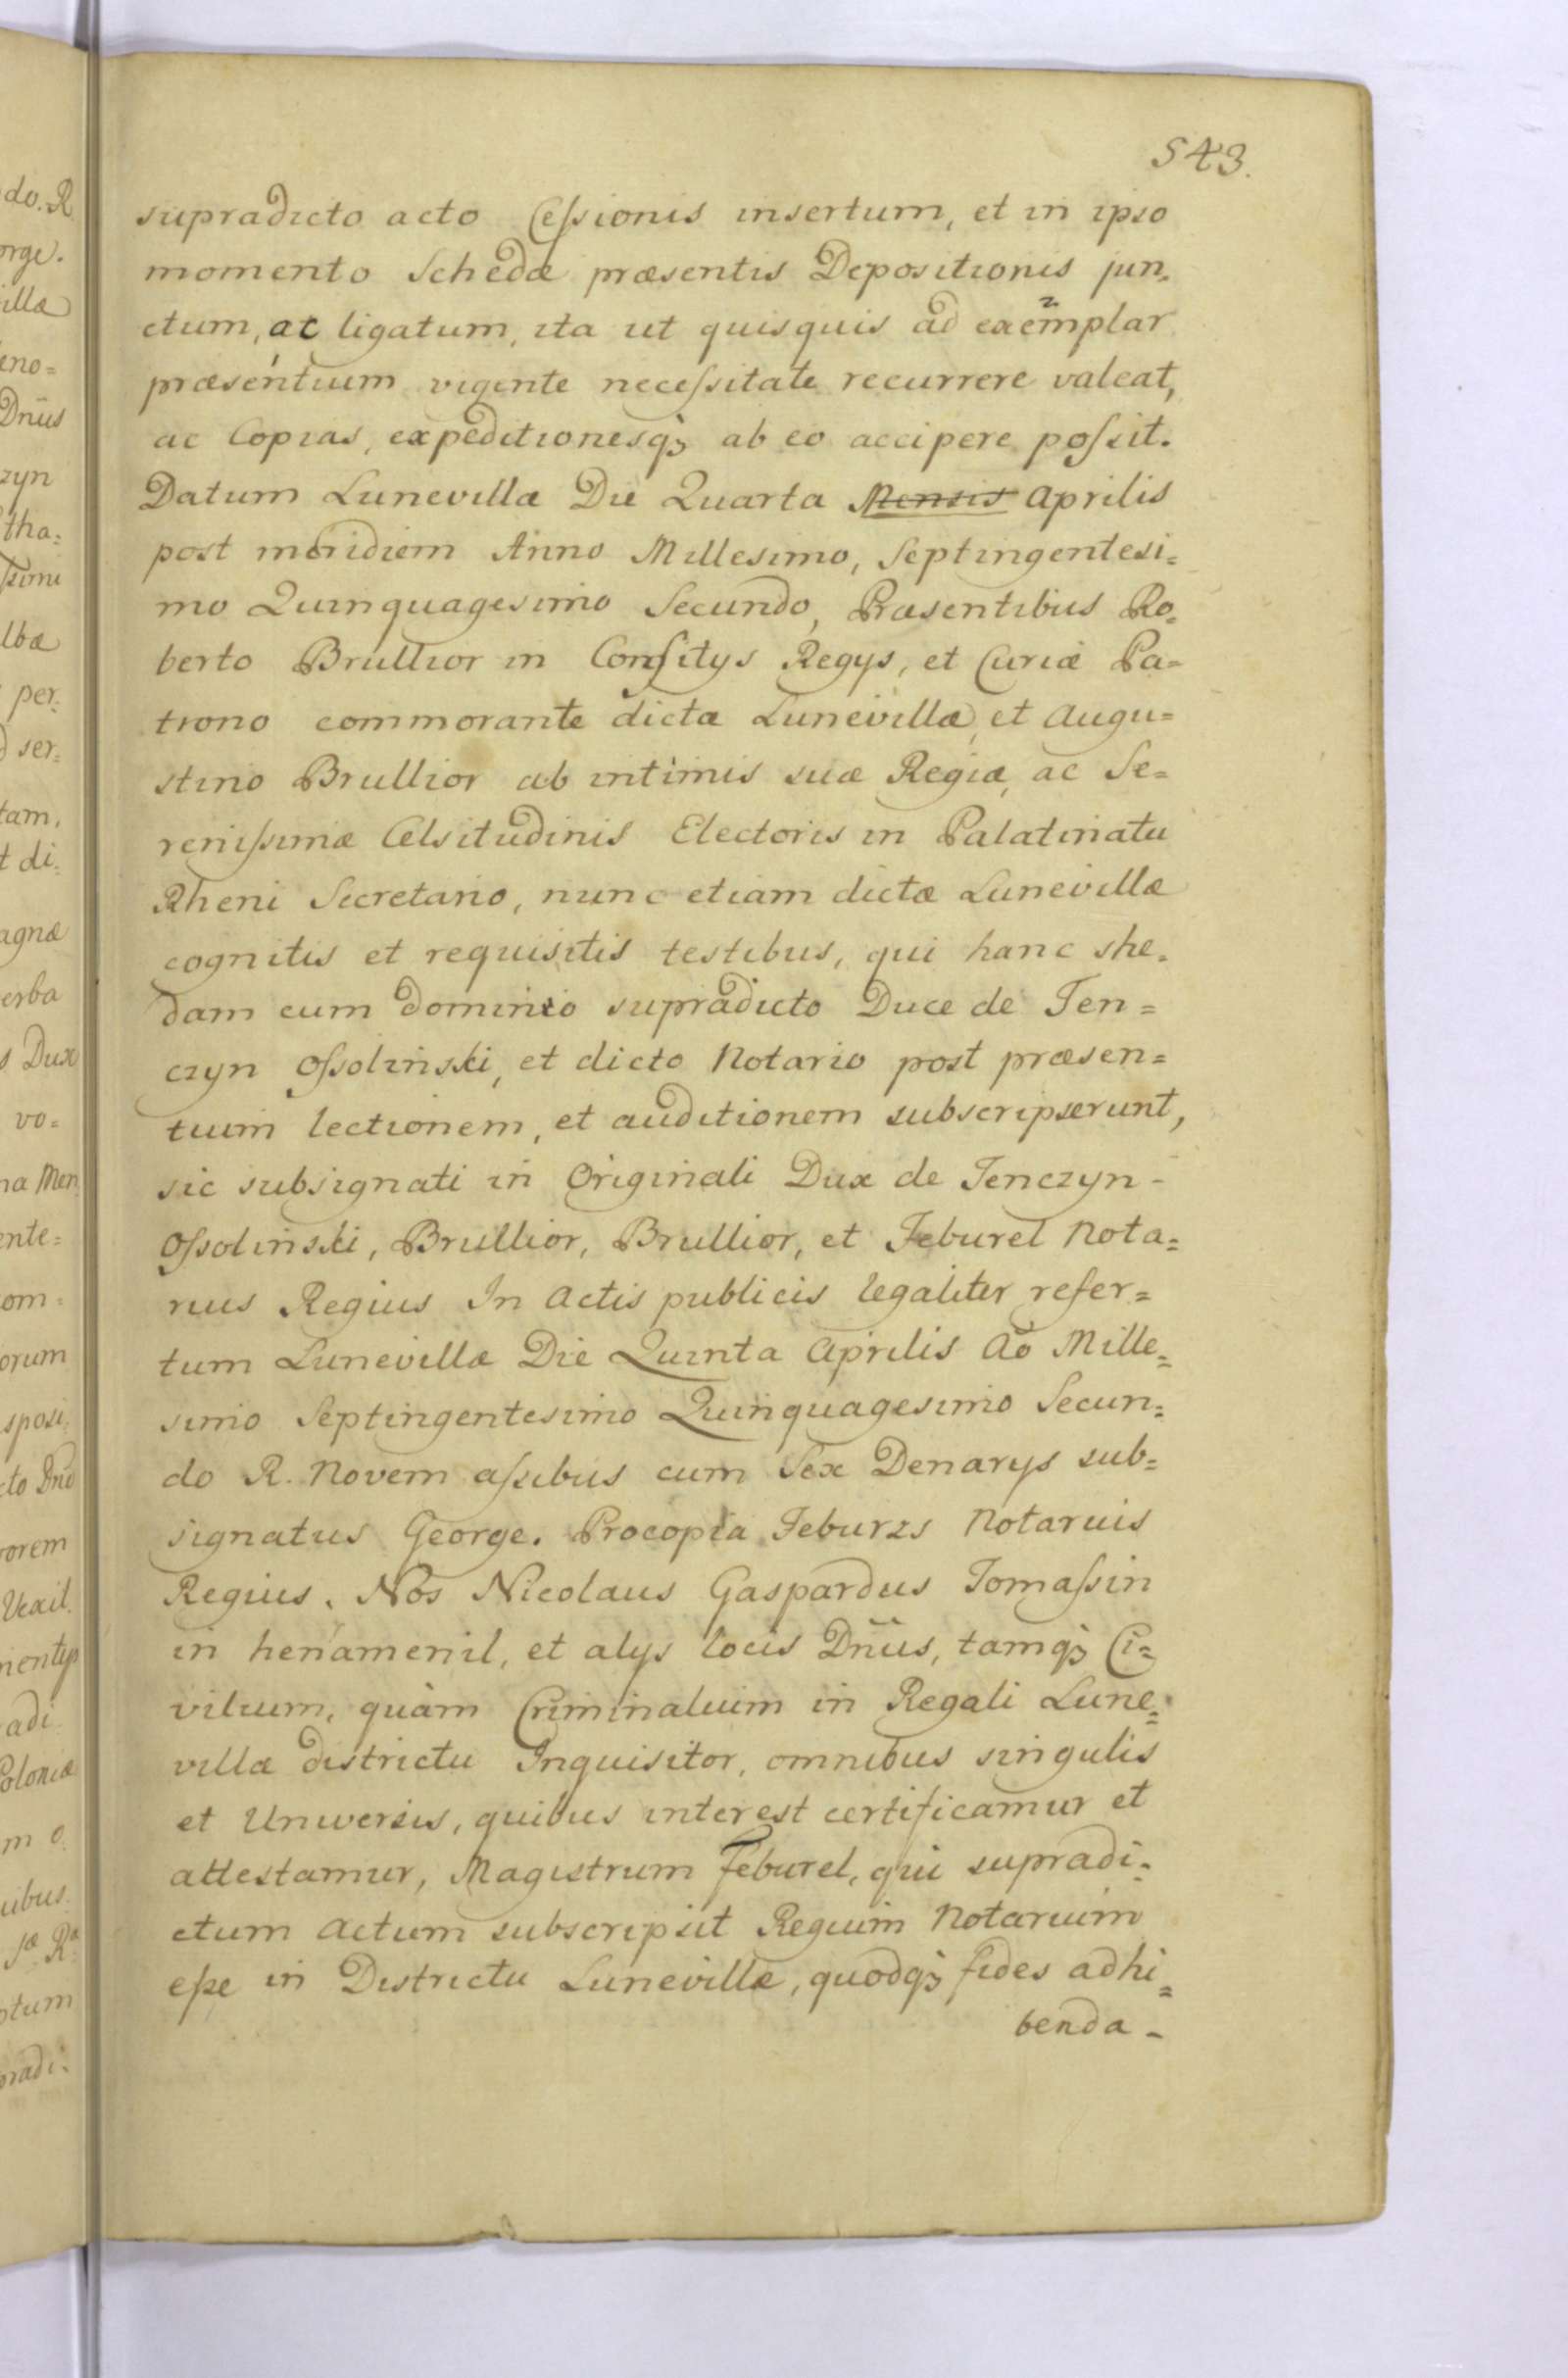 543.
supradicto acto Ceſsionis insertum, et in ipso
momento Schedæ præsentis Depositionis jun=
ctum, ac ligatum, ita ut quisquis ad exemplar
præsentium vigente neceſsitate recurrere valeat,
ac Copias, expeditionesq́ꝫ ab eo accipere poſsit.
Datum Lunevillæ Die Quarta Mensis Aprilis
post meridiem Anno Millesimo, Septingentesi=
mo Quinquagesimo Secundo, Præsentibus Ro=
berto Brullior in Conſilys Regys, et Curiæ Pa=
trono commorante dictæ Lunevillæ, et Augu=
stino Brullior ab intimis suæ Regiæ, ac Se=
reniſsimæ Celsitudinis Electoris in Palatinatu
Rheni Secretario, nunc etiam dictæ Lunevillæ
cognitis et requisitis testibus, qui hanc she=
dam cum Dominio supradicto Duce de Ten=
czyn Oſsolinski, et dicto Notario post præsen=
tium lectionem, et auditionem subscripserunt,
sic subsignati in Originali Dux de Tenczyn-
Oſsolinski, Brullior, Brullior, et Feburel Nota=
rius Regius In Actis publicis legaliter refer=
tum Lunevillæ Die Quinta Aprilis Aõ Mille=
simo Septingentesimo Quinquagesimo Secun=
do R. Novem aſsibus cum Sex Denarys sub=
signatus George. Procopia Feburzs Notarius
Regius. Nos Nicolaus Gaspardus Tomaſsin
in henamenil, et alys locis Dñus, tamq́ꝫ Ci=
vilium, quàm Criminalium in Regali Lune=
villæ districtu Inquisitor, omnibus singulis
et Universis, quibus interest certificamur et
attestamur, Magistrum Feburel, qui supradi=
ctum Actum subscripsit Regium Notarium
eſse in Districtu Lunevillæ, quodq́ꝫ fides adhi=
benda -